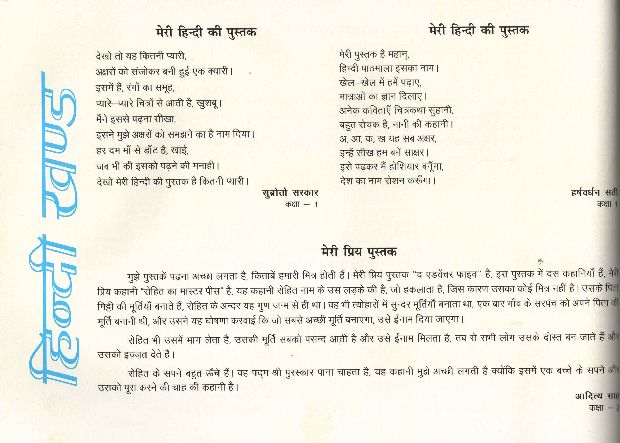 हिन्दी खण्ड
मेरी हिन्दी की पुस्तक
देखो तो यह कितनी प्यारी,
अक्षरों को संजोकर बनी हुई एक क्यारी।
इसमें हैं, रंगों का समूह,
प्यारे–प्यारे चित्रों से आती है, खुशबू।
मैंने इससे पढ़ना सीखा,
इसने मुझे अक्षरों को समझने का है नाम दिया।
हर दम माँ से डाँट है, खाई,
जब भी की इसको पढ़ने की मनाही।
देखो मेरी हिन्दी की पुस्तक है कितनी प्यारी।
सुब्रोतो सरकार
कक्षा – 1
मेरी हिन्दी की पुस्तक
मेरी पुस्तक है महान्,
हिन्दी पाठमाला इसका नाम।
खेल–खेल में हमें पढ़ाए,
मात्राओं का ज्ञान दिलाए।
अनेक कविताएँ चित्रकथा सुहानी,
बहुत रोचक है, नानी की कहानी।
अ, आ, क, ख यह सब अक्षर,
इन्हें सीख हम बनें साक्षर।
इसे पढ़कर मैं होशियार बनूँगा,
देश का नाम रोशन करूँगा।
हर्षवर्धन
कक्षा 1
मेरी प्रिय पुस्तक
मुझे पुस्तकें पढना अच्छा लगता है, किताबें हमारी मित्र होती हैं। मेरी प्रिय पुस्तक "द एडवेंचर फाइव" है, इस पुस्तक में दस कहानियाँ हैं, मेरी
प्रिय कहानी "रोहित का मास्टर पीस" है, यह कहानी रोहित नाम के उस लड़के की है, जो हकलाता है, जिस कारण उसका कोई मित्र नहीं है। उसके
मिट्टी की मूर्तियाँ बनाते हैं, रोहित के अन्दर यह गुण जन्म से ही था। वह भी त्योहारों में सुन्दर मूर्तियाँ बनाता था, एक बार गाँव के सरपंच को अपने पिता
मूर्ति बनानी थी, और उसने यह घोषणा करवाई कि जो सबसे अच्छी मूर्ति बनाएगा, उसे ईनाम दिया जाएगा।
रोहित भी उसमें भाग लेता है, उसकी मूर्ति सबको पसन्द आती है और उसे ईनाम मिलता है, तब से सभी लोग उसके दोस्त बन जाते हैं और
उसको इज्जत देते है।
रोहित के सपने बहुत ऊँचे हैं। वह पद्म श्री पुरस्कार पाना चाहता है, यह कहानी मुझे अच्छी लगती है क्योंकि इसमें एक बच्चे के सपने और
उसको पूरा करने की चाह की कहानी है।
आदित्य
कक्षा –